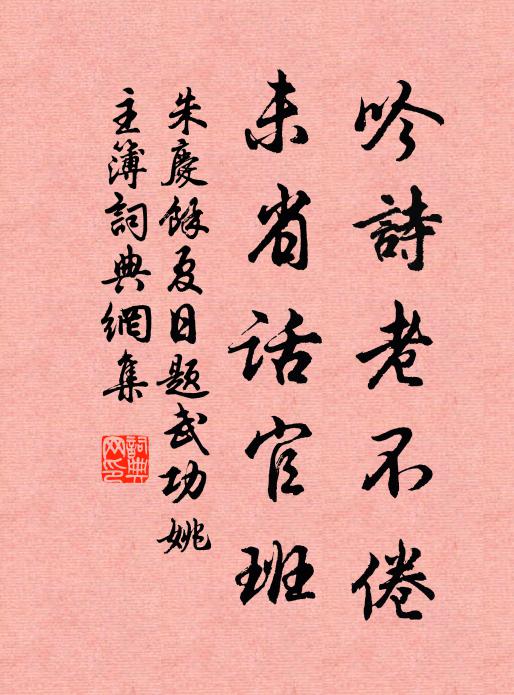 吟詩老不倦
未省話官班
朱慶餘夏日題武功姚
主簿詞典網集
詞典網印